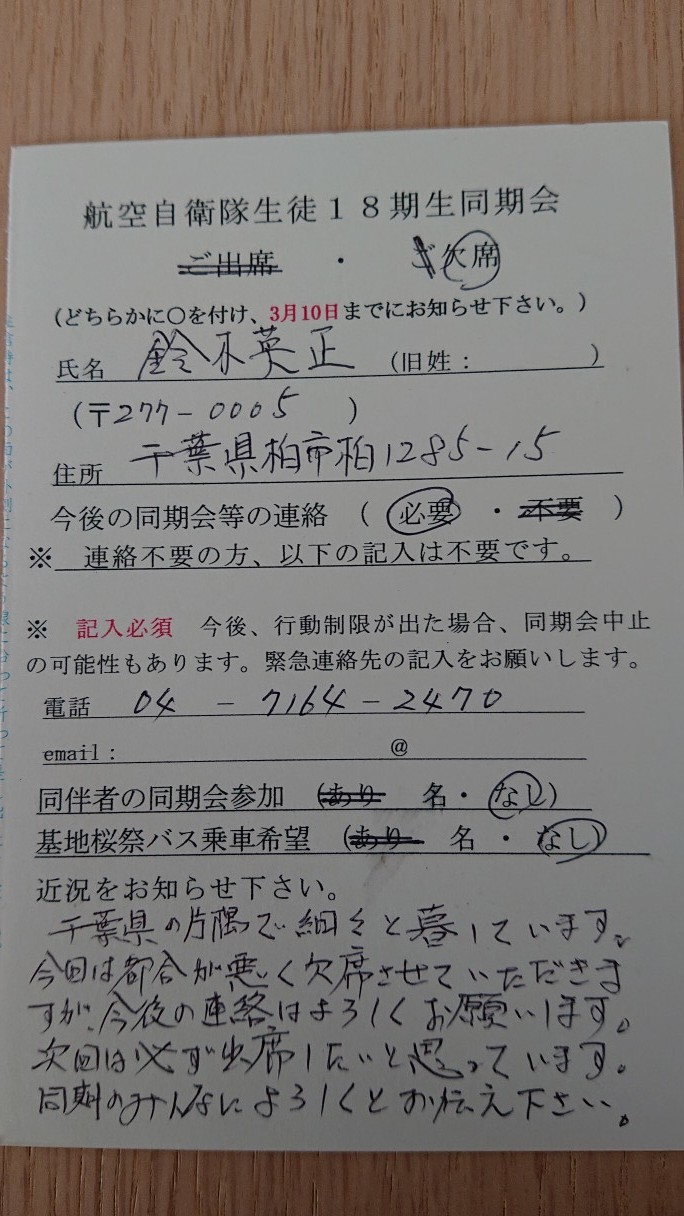 航空自衛隊生徒１８期生同期会
ご出席 ・ ご欠席
(どちらかに〇を付け、3月10日までにお知らせ下さい。)
氏名 鈴木英正 (旧姓： )
(〒277-0005 )
住所 千葉県柏市柏1285-15
今後の同期会等の連絡 ( 必要 ・ 不要 )
※ 連絡不要の方、以下の記入は不要です。
※ 記入必須 今後、行動制限が出た場合、同期会中止
の可能性もあります。緊急連絡先の記入をお願いします。
電話 04 - 7164 - 2470
email： @
同伴者の同期会参加 (あり 名・ なし)
基地桜祭バス乗車希望 (あり 名 ・ なし)
近況をお知らせ下さい。
千葉県の片隅で細々と暮しています。
今回は都合が悪く欠席させていただきま
すが、今後の連絡はよろしくお願いします。
次回は必ず出席したいと思っています。
同期のみんなによろしくとお伝え下さい。